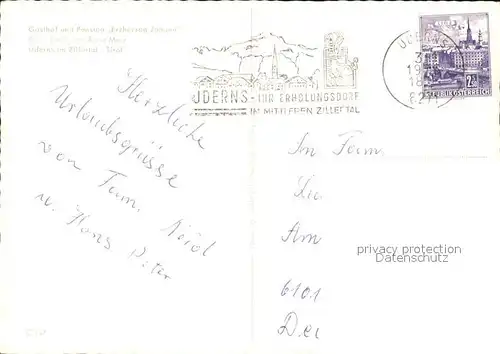 Gasthof und Pension "Erzherzog Johann"
Uderns im Zillertal - Tirol
UDERNS - IHR ERHOLUNGSDORF
IM MITTLEREN ZILLERTAL
UDERNS
6271
LINZ
2.50
REPUBLIK ÖSTERREICH
Herzliche
Urlaubsgrüsse
von Fam.
u. Hans Peter
An Fam.
Am
6101
privacy protection
Datenschutz